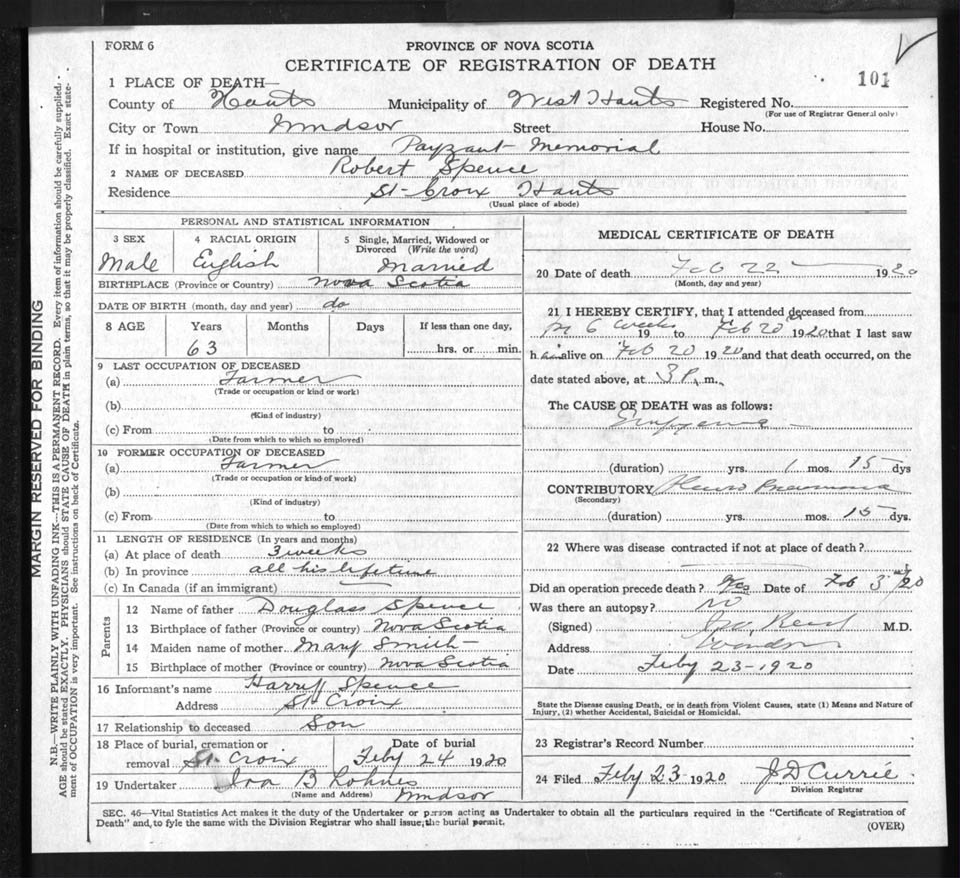 FORM 6
PROVINCE OF NOVA SCOTIA
CERTIFICATE OF REGISTRATION OF DEATH
101
1 PLACE OF DEATH—
County of Hants Municipality of West Hants Registered No.
(For use of Registrar General only)
City or Town Windsor Street House No.
If in hospital or institution, give name Payzant Memorial
2 NAME OF DECEASED Robert Spence
Residence St Croix Hants
(Usual place of abode)
MARGIN RESERVED FOR BINDING
N.B.—WRITE PLAINLY WITH UNFADING INK—THIS IS A PERMANENT RECORD. Every item of information should be carefully supplied.
AGE should be stated EXACTLY. PHYSICIANS should STATE CAUSE OF DEATH in plain terms, so that it may be properly classified. Exact state-
ment of OCCUPATION is very important. See instructions on back of Certificate.
PERSONAL AND STATISTICAL INFORMATION
3 SEX 4 RACIAL ORIGIN 5 Single, Married, Widowed or
Divorced (Write the word)
Male English Married
BIRTHPLACE (Province or Country) Nova Scotia
DATE OF BIRTH (month, day and year) do
8 AGE Years Months Days If less than one day,
63 hrs. or min.
9 LAST OCCUPATION OF DECEASED
(a) Farmer
(Trade or occupation or kind or work)
(b)
(Kind of industry)
(c) From to
(Date from which to which so employed)
10 FORMER OCCUPATION OF DECEASED
(a) Farmer
(Trade or occupation or kind of work)
(b)
(Kind of industry)
(c) From to
(Date from which to which so employed)
11 LENGTH OF RESIDENCE (In years and months)
(a) At place of death 3 weeks
(b) In province all his lifetime
(c) In Canada (if an immigrant)
Parents
12 Name of father Douglass Spence
13 Birthplace of father (Province or country) Nova Scotia
14 Maiden name of mother Mary Smith
15 Birthplace of mother (Province or country) Nova Scotia
16 Informant's name Harry Spence
Address St Croix
17 Relationship to deceased Son
18 Place of burial, cremation or Date of burial
removal St. Croix Feby 24 1920
19 Undertaker Ira B
(Name and Address) Windsor
MEDICAL CERTIFICATE OF DEATH
20 Date of death Feb 22 1920
(Month, day and year)
21 I HEREBY CERTIFY, that I attended deceased from
6 weeks 19 to Feb 20 1920 that I last saw
him alive on Feb 20 1920 and that death occurred, on the
date stated above, at 3 P. m.
The CAUSE OF DEATH was as follows:
Empyema
(duration) yrs. 1 mos. 15 dys
CONTRIBUTORY Pleuro Pneumonia
(Secondary)
(duration) yrs. mos. 15 dys.
22 Where was disease contracted if not at place of death?
Did an operation precede death? Yes Date of Feb 3 /20
Was there an autopsy? No
(Signed) M.D.
Address Windsor
Date Feby 23-1920
State the Disease causing Death, or in death from Violent Causes, state (1) Means and Nature of
Injury, (2) whether Accidental, Suicidal or Homicidal.
23 Registrar's Record Number
24 Filed Feby 23 1920 J D Currie
Division Registrar
SEC. 46—Vital Statistics Act makes it the duty of the Undertaker or person acting as Undertaker to obtain all the particulars required in the "Certificate of Registration of
Death" and, to fyle the same with the Division Registrar who shall issue, the burial permit.
(OVER)